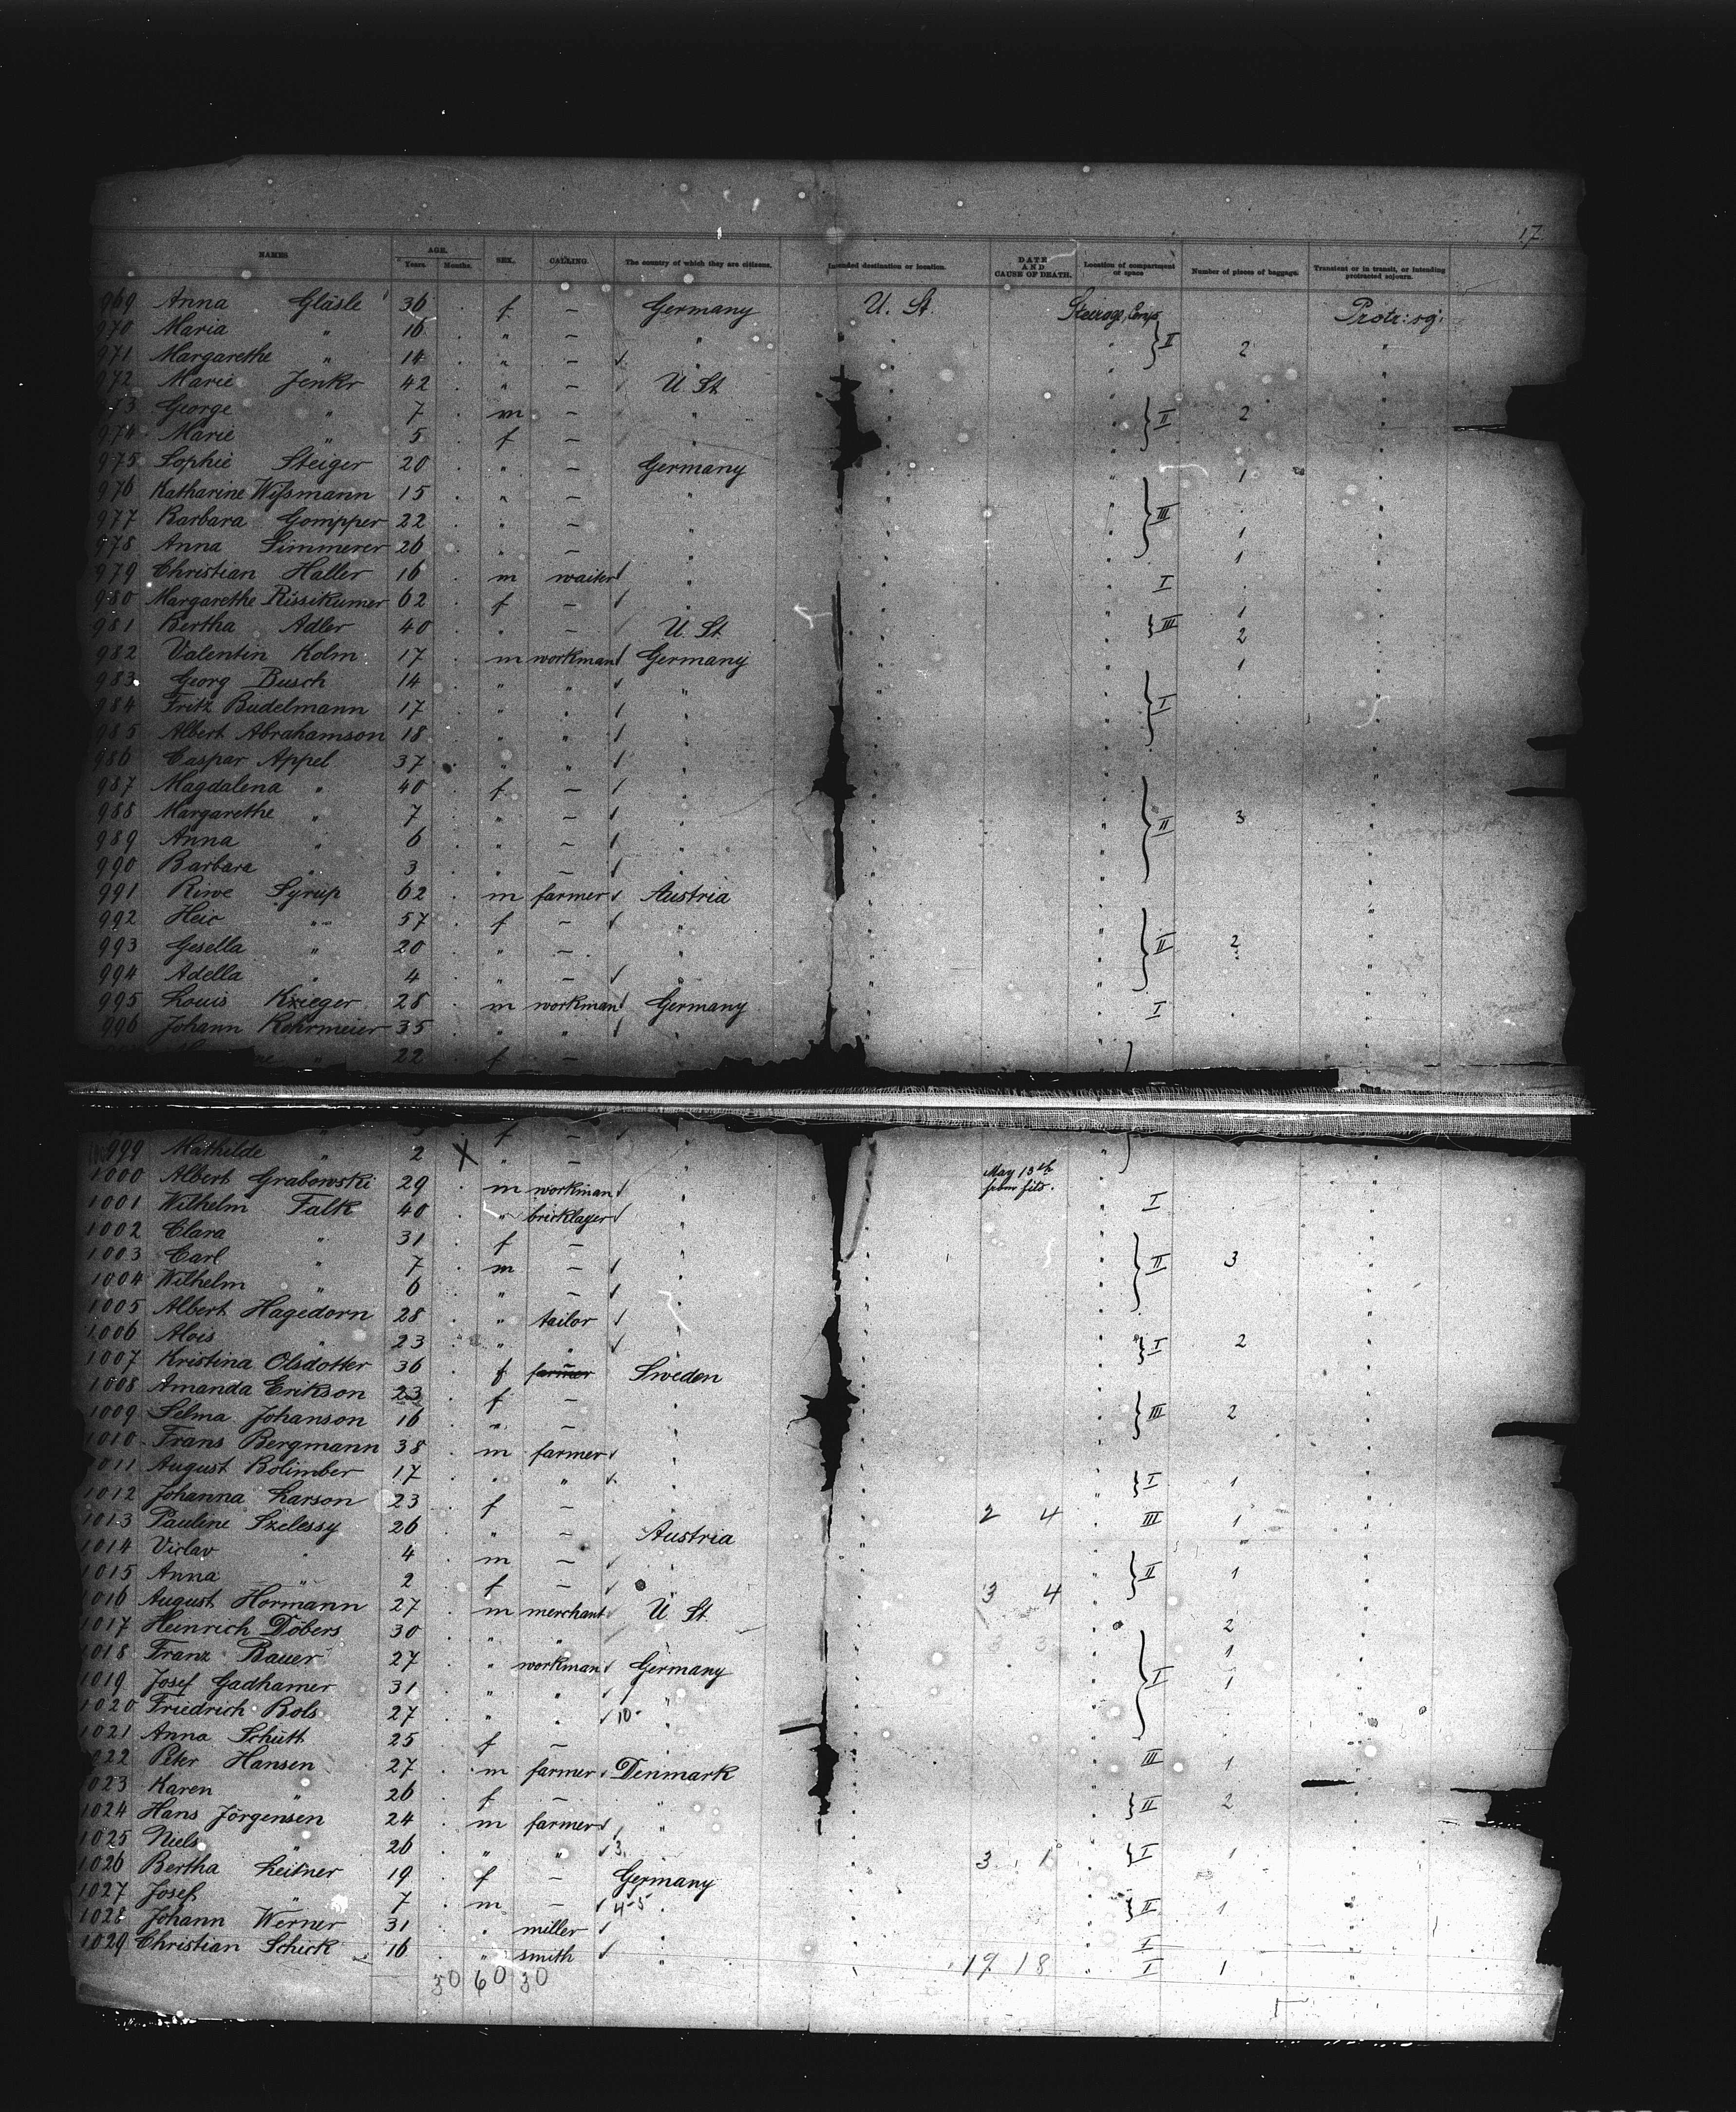 17
NAMES AGE. Years. Months. SEX. CALLING. The country of which they are citizens. Intended destination or location. DATE AND CAUSE OF DEATH. Location of compartment or space Number of pieces of baggage. Transient or in transit, or intending protracted sojourn.
969 Anna Gläsle 36 f — Germany U. St. Steerage, Comp. Protr: soj:
970 Maria " 16 " — "
971 Margarethe " 14 " — " II 2 "
972 Marie Jenkr 42 " — U. St "
973 George " 7 m — " II 2 "
974 Marie " 5 f — " "
975 Sophie Steiger 20 " — Germany 1 "
976 Katharine Wißmann 15 " — " "
977 Barbara Gompper 22 " — " III 1 "
978 Anna Simmerer 26 " — " 1 "
979 Christian Haller 16 m waiter " I "
980 Margarethe Rissikumer 62 f — " 1 "
981 Bertha Adler 40 " — U. St III 2 "
982 Valentin Kolm 17 m workman Germany 1 "
983 Georg Busch 14 " " " "
984 Fritz Budelmann 17 " " " I "
985 Albert Abrahamson 18 " " " "
986 Caspar Appel 37 " " " "
987 Magdalena " 40 f — " "
988 Margarethe " 7 " — " II 3 "
989 Anna " 6 " — " "
990 Barbara " 3 " — " "
991 Riwe Syrup 62 m farmer Austria "
992 Heic " 57 f — " "
993 Gesella " 20 " — " II 2 "
994 Adella " 4 " — " "
995 Louis Krieger 28 m workman Germany I "
996 Johann Rohrmeier 35 " " " "
" 22 f —
" f —
999 Mathilde " 2 X " — "
1000 Albert Grabowski 29 m workman " May 13th from fits. "
1001 Wilhelm Falk 40 " bricklayer " I "
1002 Clara " 31 f — " "
1003 Carl " 7 m — " II 3 "
1004 Wilhelm " 6 " — " "
1005 Albert Hagedorn 28 " tailor " "
1006 Alois " 23 " " " I 2 "
1007 Kristina Olsdotter 36 f farmer Sweden "
1008 Amanda Erikson 23 f — " "
1009 Selma Johanson 16 " — " III 2 "
1010 Frans Bergmann 38 m farmer " "
1011 August Bolimber 17 " " " I 1 "
1012 Johanna Larson 23 f — " 2 4 III 1 "
1013 Pauline Szelessy 26 " — Austria "
1014 Viclav " 4 m — " II 1 "
1015 Anna " 2 f — " 3 4 "
1016 August Hormann 27 m merchant U. St 2 "
1017 Heinrich Döbers 30 " " " 3 3 1 "
1018 Franz Bauer 27 " workman Germany I 1 "
1019 Josef Gadhamer 31 " " " "
1020 Friedrich Bols 27 " " 10- " "
1021 Anna Schütt 25 f — " III 1 "
1022 Peter Hansen 27 m farmer Denmark "
1023 Karen " 26 f — " II 2 "
1024 Hans Jörgensen 24 m farmer " "
1025 Niels " 26 " " 3. 3 1 I 1 "
1026 Bertha Leitner 19 f — Germany "
1027 Josef " 7 m — 4-5 " II 1 "
1028 Johann Werner 31 " miller " I "
1029 Christian Schick 16 " smith " 19 18 I 1 "
30 60 30